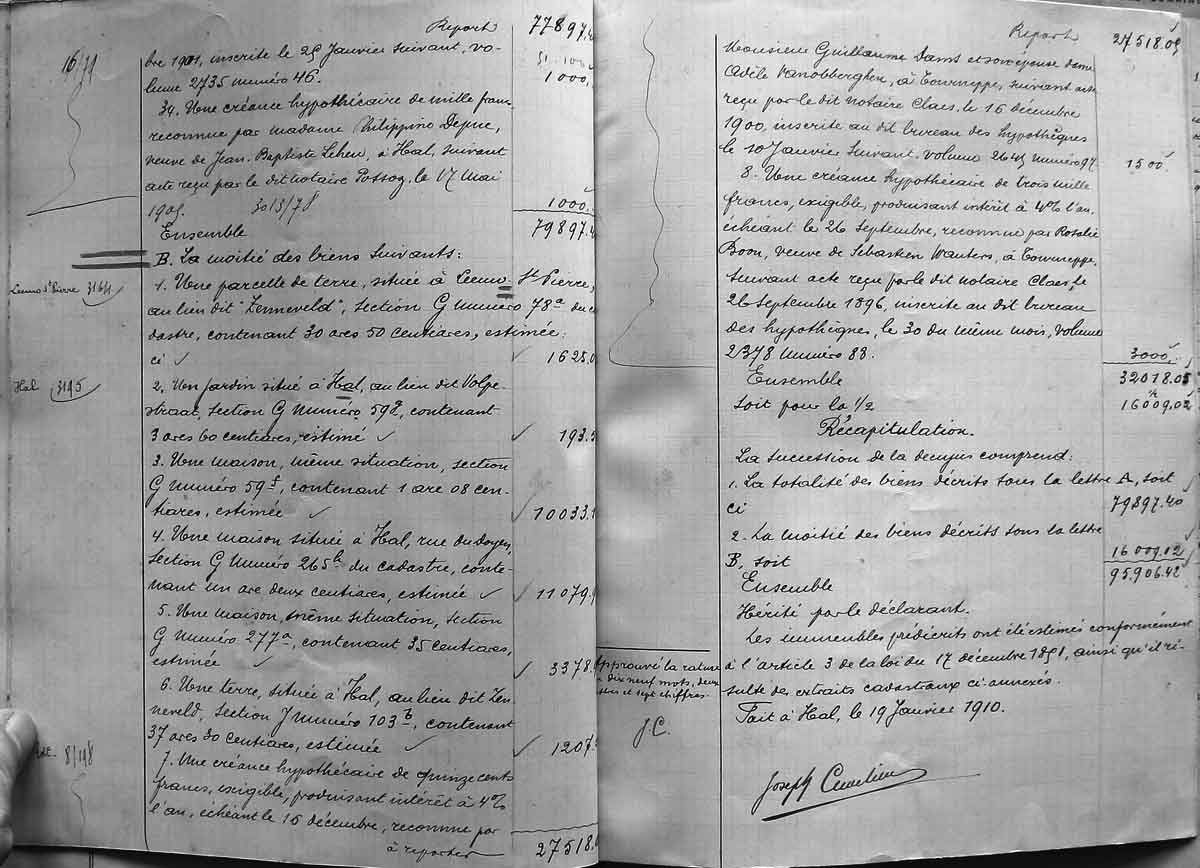 Report 77897.40
1679
bre 1901, inscrite le 25 Janvier suivant, vo-
lume 2735 numéro 46. 1000.
34. Une créance hypothécaire de mille francs
reconnue par madame Philippine
veuve de Jean-Baptiste à Hal, suivant
acte reçu par le dit notaire Possoz, le 17 Mai
1905. 3013/78 1000.
Ensemble 79897.4
B. La moitié des biens suivants:
Leeuw St Pierre 3164
1. Une parcelle de terre, située à Leeuw St Pierre,
au lieu dit "Zenneveld", section G numéro 78a du ca
dastre, contenant 30 ares 50 centiares, estimée:
ci 1625.0
Hal 3195
2. Un jardin situé à Hal, au lieu dit Volpe-
straat, section G numéro 59g, contenant
3 ares 60 centiares, estimé 193.5
3. Une maison, même situation, section
G numéro 59f, contenant 1 are 08 cen-
tiares, estimée 10033.1
4. Une maison située à Hal, rue du doyen,
section G numéro 265h du cadastre, conte-
nant un are deux centiares, estimée 11079.9
5. Une maison, même situation, section
G numéro 277a, contenant 35 centiares,
estimée 3378.
6. Une terre, située à Hal, au lieu dit Zen-
neveld, section J numéro 103b, contenant
37 ares 30 centiares, estimée 1207.
8/198
7. Une créance hypothécaire de quinze cents
francs, exigible, produisant intérêt à 4%
l'an, échéant le 16 décembre, reconnue par
à reporter 27518.
Report 27518.05
Monsieur Guillaume Dams et son épouse dame
Adèle Vanobberghen, à Tourneppe, suivant acte
reçu par le dit notaire Claes, le 16 décembre
1900, inscrite au dit bureau des hypothèques
le 10 Janvier suivant, volume 2645 numéro 97. 1500
8. Une créance hypothécaire de trois mille
francs, exigible, produisant intérêt à 4% l'an,
échéant le 26 septembre, reconnue par Rosalie
Boon, veuve de Sébastien Wauters, à Tourneppe,
suivant acte reçu par le dit notaire Claes le
26 septembre 1896, inscrite au dit bureau
des hypothèques, le 30 du même mois, volume
2378 numéro 88. 3000
Ensemble 32018.05
soit pour la 1/2 16009.02
Récapitulation.
La succession de la decujus comprend:
1. La totalité des biens décrits sous la lettre A, soit
ci 79897.40
2. La moitié des biens décrits sous la lettre
B, soit 16009.02
Ensemble 95.906.42
Hérité par le déclarant.
Les immeubles prédécrits ont été estimés conformément
à l'article 3 de la loi du 17 décembre 1851, ainsi qu'il ré-
sulte des extraits cadastraux ci-annexés.
Fait à Hal, le 19 Janvier 1910.
Approuvé la rature
dix neuf mots, deux
et sept chiffres.
J.C.
Joseph